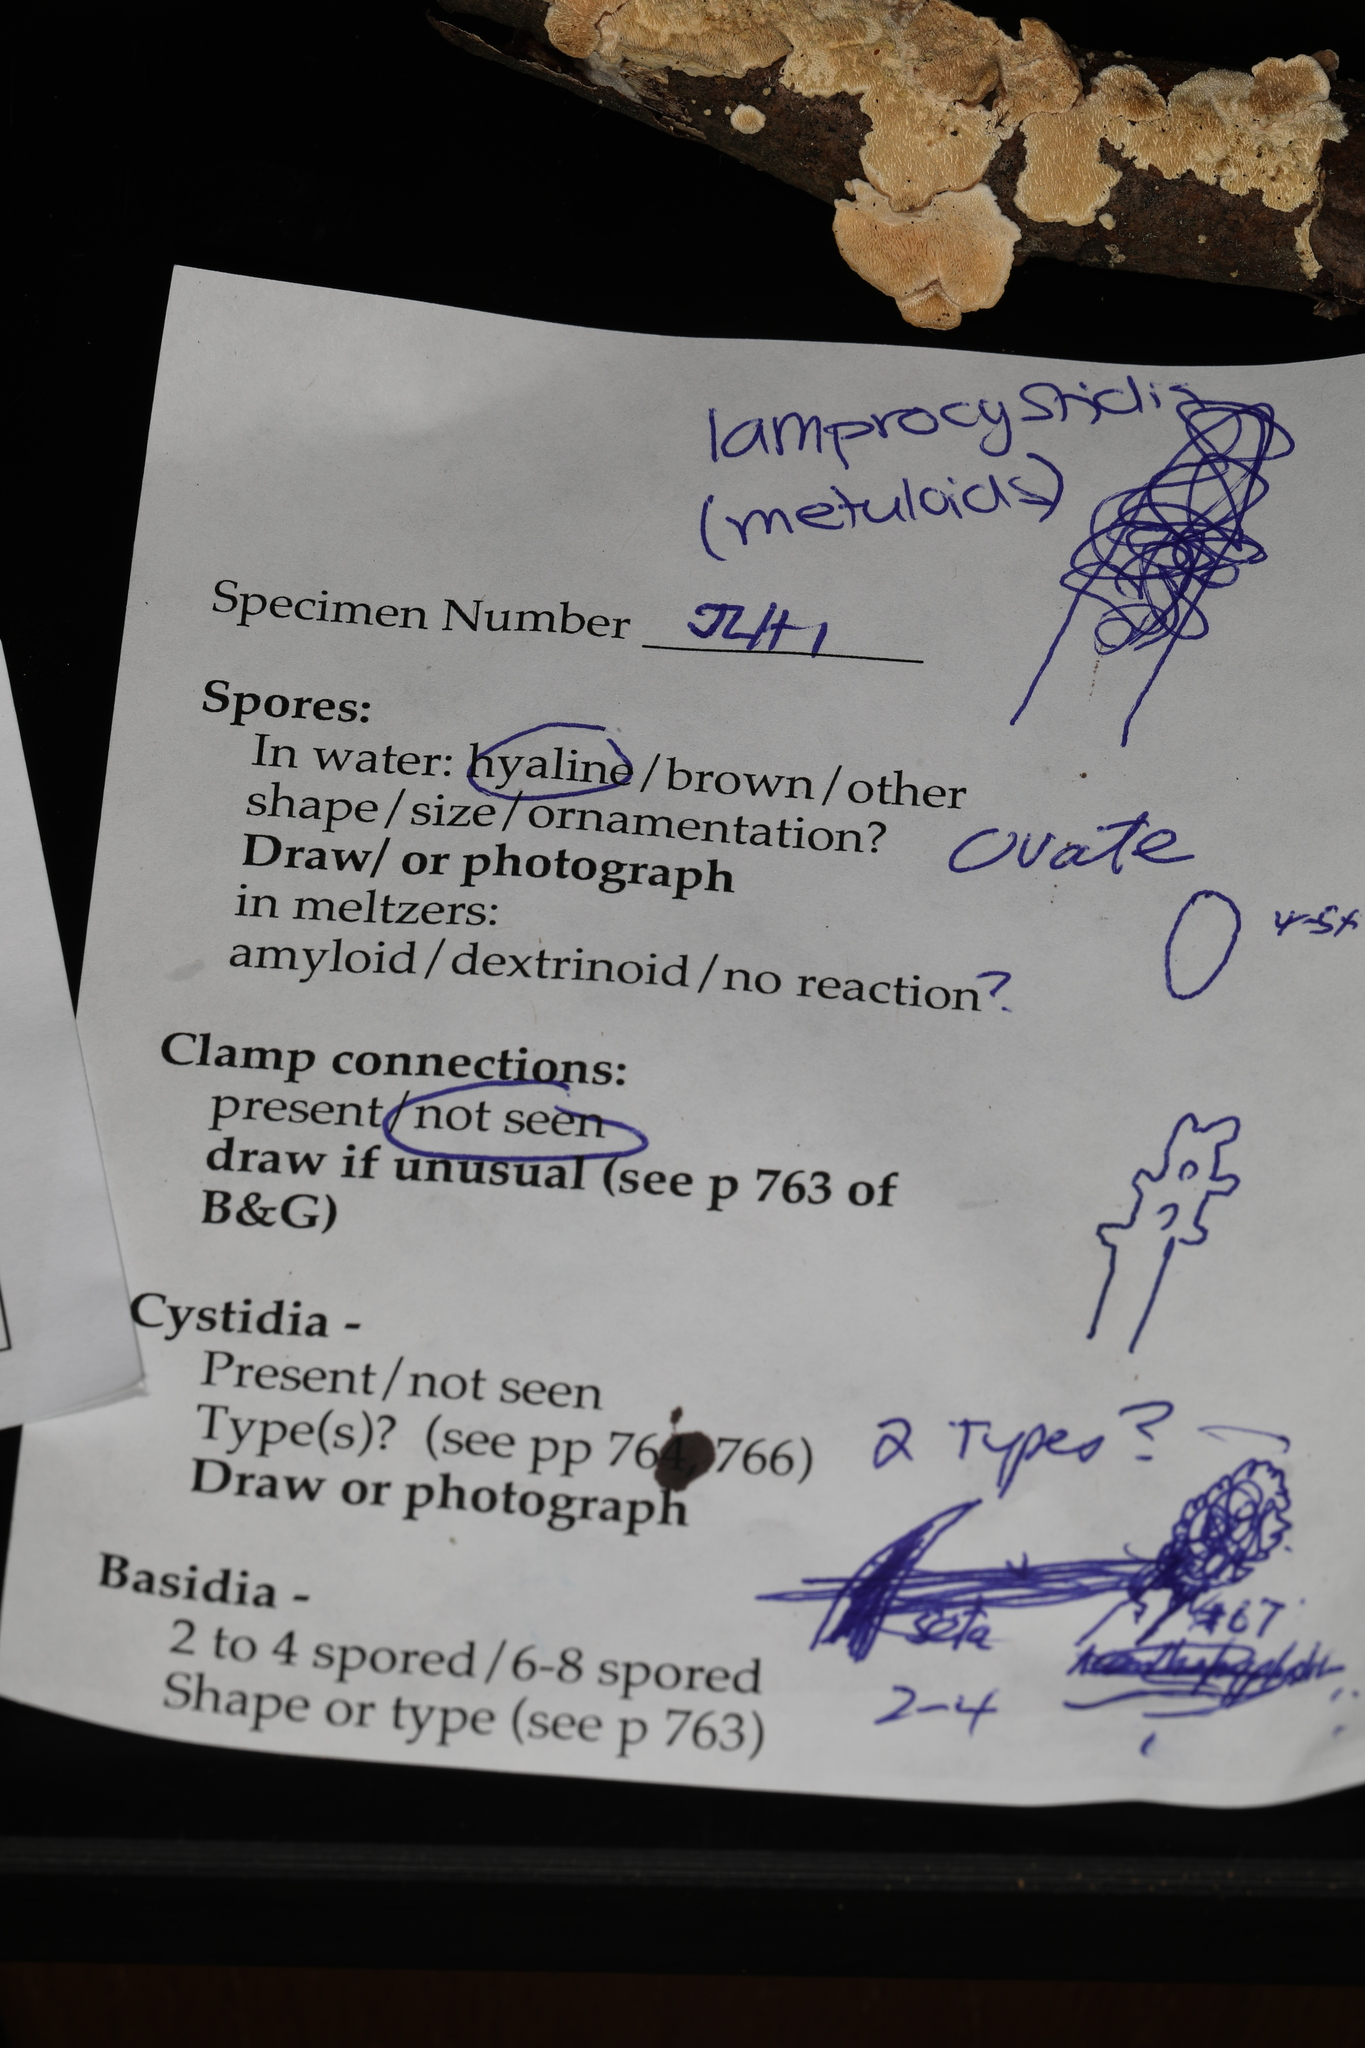 lamprocystidia
(metuloids)
Specimen Number JLH1
Spores:
In water: hyaline/brown/other
shape/size/ornamentation?
ovate
Draw/ or photograph
in meltzers:
4-5x
amyloid/dextrinoid/no reaction?
Clamp connections:
present/not seen
draw if unusual (see p 763 of
B&G)
Cystidia -
Present/not seen
Type(s)? (see pp 764, 766)
2 Types?
Draw or photograph
seta
#67
Basidia -
2 to 4 spored/6-8 spored
2-4
Shape or type (see p 763)